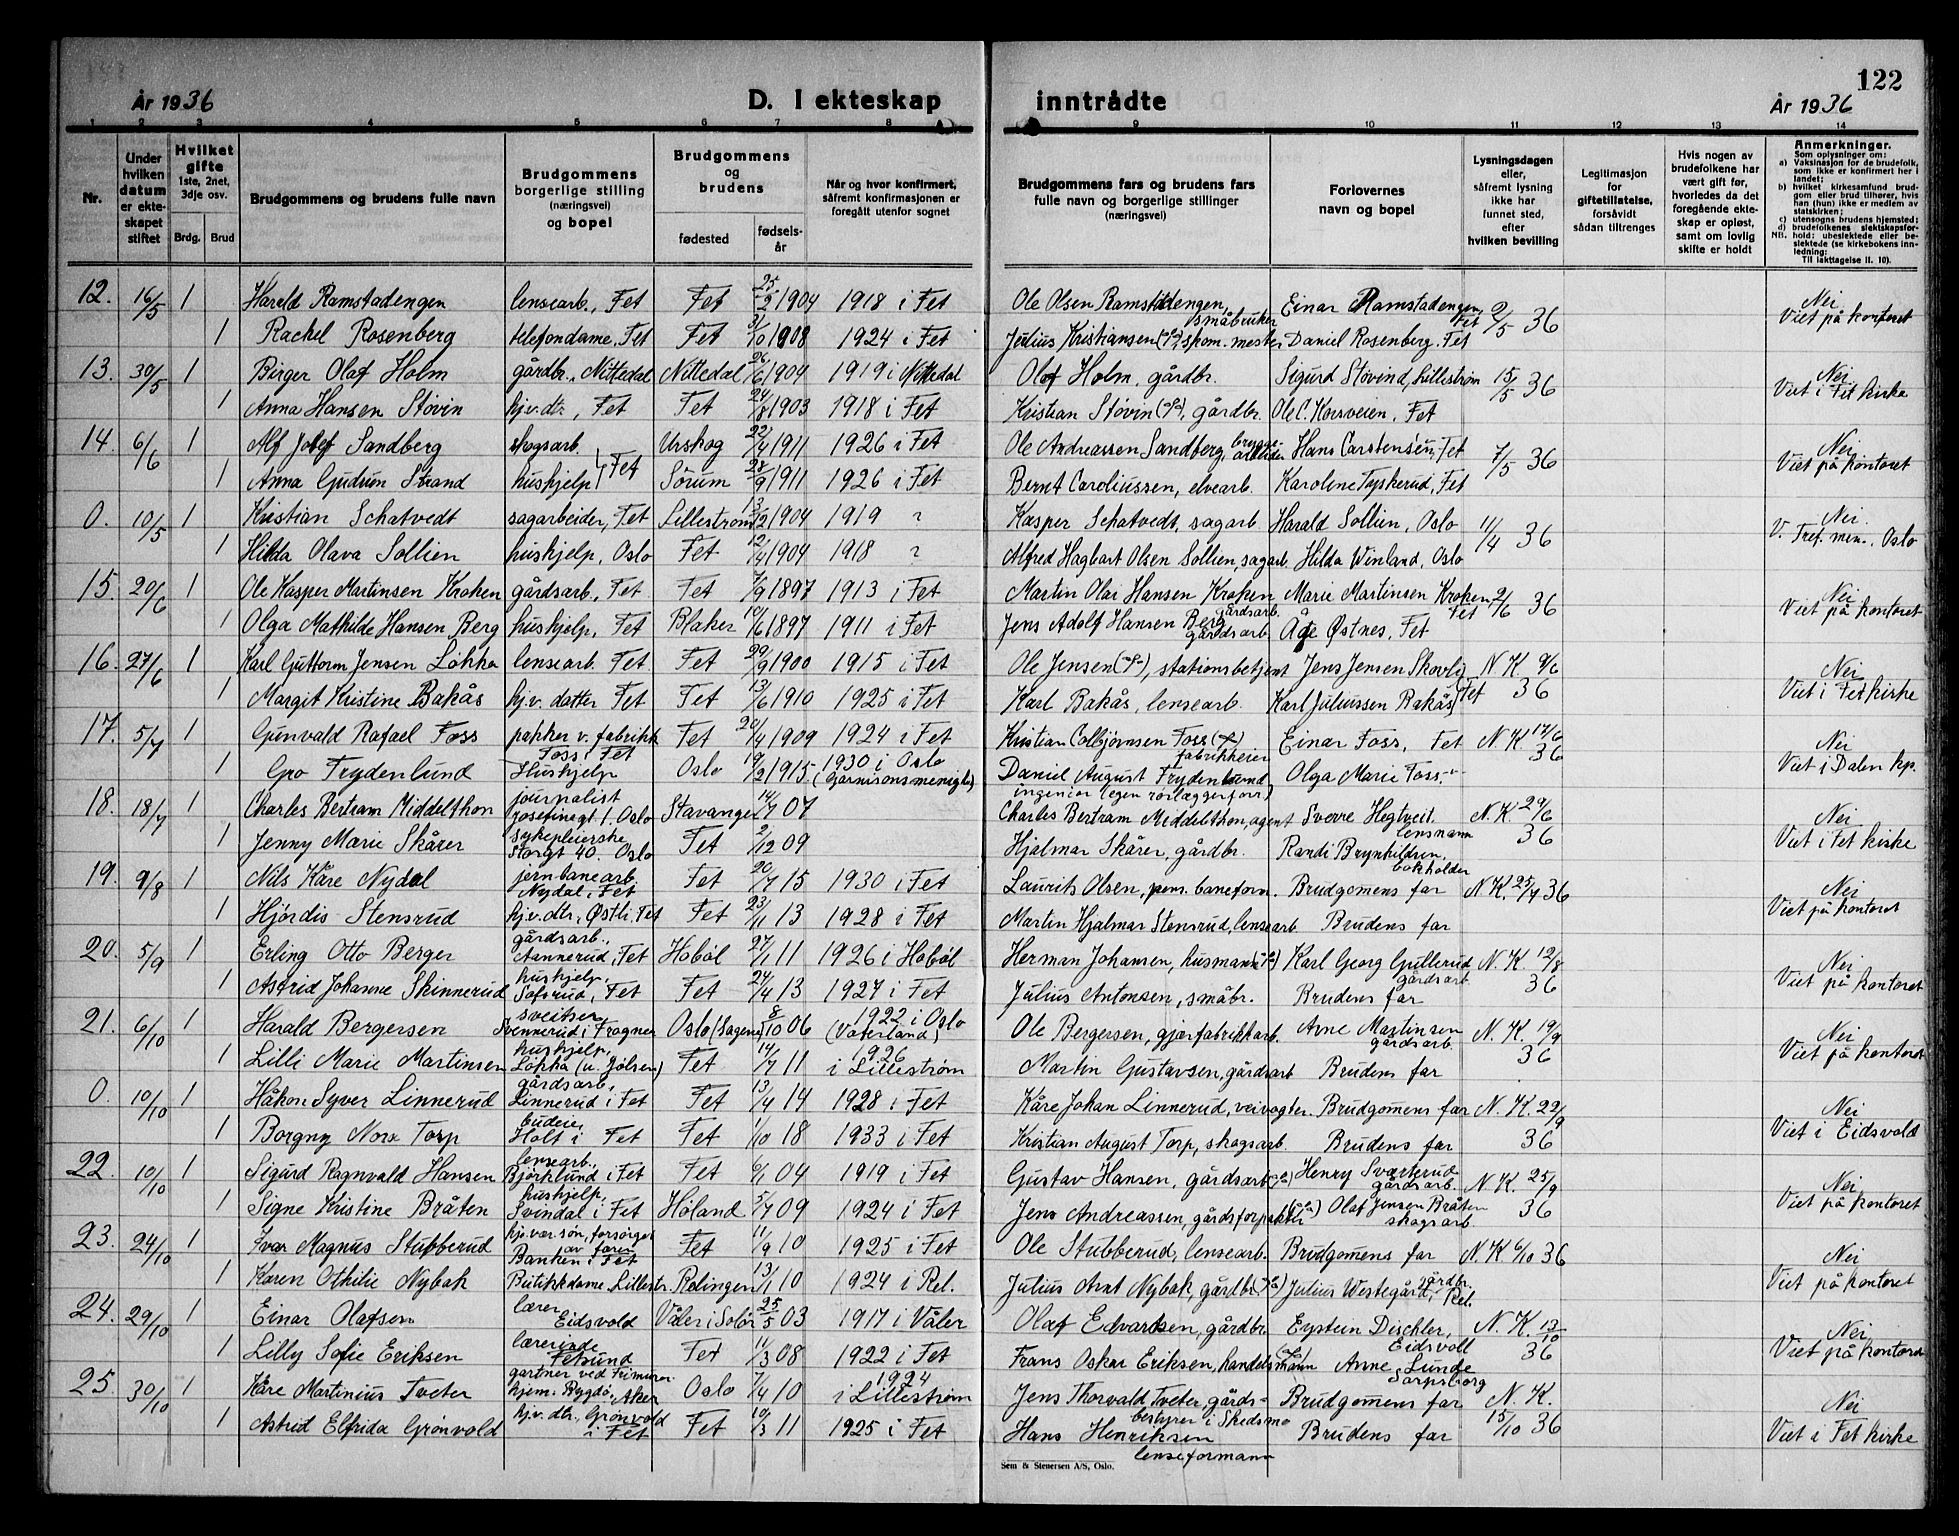 År 1936 D. I ekteskap
inntrådte År 1936 122
1 2 3 4 5 6 7 8 9 10 11 12 13 14
Nr.
Under hvilken datum er ekteskapet stiftet
Hvilket gifte 1ste, 2net, 3dje osv.
Brdg. Brud
Brudgommens og brudens fulle navn
Brudgommens borgerlige stilling (næringsvei) og bopel
Brudgommens og brudens
fødested fødselsår
Når og hvor konfirmert, såfremt konfirmasjonen er foregått utenfor sognet
Brudgommens fars og brudens fars fulle navn og borgerlige stillinger (næringsvei)
Forlovernes navn og bopel
Lysningsdagen eller, såfremt lysning ikke har funnet sted, efter hvilken bevilling
Legitimasjon for giftetillatelse, forsåvidt sådan tiltrenges
Hvis nogen av brudefolkene har vært gift før, hvorledes da det foregående ekteskap er opløst, samt om lovlig skifte er holdt
Anmerkninger.
Som oplysninger om:
a) Vaksinasjon for de brudefolk, som ikke er konfirmert her i landet;
b) hvilket kirkesamfund brudgom eller brud tilhører, hvis han (hun) ikke er medlem av statskirken;
c) utensogns brudens hjemsted;
d) brudefolkenes slektskapsforhold: ubeslektede eller beslektede (se kirkebokens innledning:
NB.
Til iakttagelse II. 10).
12. 16/5 1 Harald Ramstadengen lensearb., Fet Fet 25/2 1904 1918 i Fet Ole Olsen Ramstadengen, småbruker Einar Ramstadengen Fet 2/5 36 Nei Viet på kontoret
1 Rachel Rosenberg telefondame, Fet Fet 31/10 1908 1924 i Fet Julius Kristiansen skom.mester Daniel Rosenberg, Fet
13. 30/5 1 Birger Olaf Holm gårdbr., Nittedal Nittedal 26/6 1904 1919 i Nittedal Olof Holm, gårdbr. Sigurd Støvind, Lillestrøm 15/5 36 Nei Viet i Fet kirke
1 Anna Hansen Støvin hj.v.dtr, Fet Fet 24/8 1903 1918 i Fet Kristian Støvin, gårdbr. Ole C. Korsveien, Fet
14. 6/6 1 Alf Josef Sandberg skogsarb. Fet Urskog 22/4 1911 1926 i Fet Ole Andreassen Sandberg, bryggearbeider Hans Carstensen, Fet 7/5 36 Nei Viet på kontoret
1 Anna Gudrun Strand hushjelp Sørum 28/9 1911 1926 i Fet Bernt Caroliussen, elvearb. Karoline Tyskerud, Fet
0. 10/5 1 Kristian Schatvedt sagarbeider, Fet Lillestrøm 13/12 1904 1919 ? Kasper Schatvedt, sagarb. Harald Sollien, Oslo 11/4 36 Nei. V. Tref. men., Oslo
1 Hilda Olava Sollien hushjelp, Oslo Fet 12/4 1904 1918 ? Alfred Hagbart Olsen Sollien, sagarb. Hilda Winland, Oslo
15. 20/6 1 Ole Kasper Martinsen Kroken gårdsarb., Fet Fet 7/9 1897 1913 i Fet Martin Olai Hansen Kroken gårdsarb. Marie Martinsen Kroken Fet 2/6 36 Nei Viet på kontoret
1 Olga Mathilde Hansen Berg hushjelp, Fet Blaker 10/6 1897 1911 i Fet Jens Adolf Hansen Berg gårdsarb. Åge Østnes, Fet
16. 27/6 1 Karl Guttorm Jensen Løkka lensearb. Fet Fet 29/9 1900 1915 i Fet Ole Jensen, stationsbetjent Jens Jensen Skovli Fet N.K. 9/6 36 Nei Viet i Fet kirke
1 Margit Kristine Bakås hj.v. datter Fet Fet 13/6 1910 1925 i Fet Karl Bakås, lensearb. Karl Juliussen Bakås
17. 5/7 1 Gunvald Rafael Foss pakker v. fabrikk Foss i Fet Fet 20/4 1909 1924 i Fet Kristian Colbjørnsen Foss fabrikkeier Einar Foss, Fet N.K. 17/6 36 Nei Viet i Dalen kp.
1 Gro Frydenlund Hushjelp Oslo 19/2 1915 1930 i Oslo (Garnisonsmenigh.) Daniel August Frydenlund ingeniør (egen rørlæggerforr.) Olga Marie Foss -"-
18. 18/7 1 Charles Bertram Middelthon journalist Josefinegt 1. Oslo Stavanger 14/7 07 Charles Bertram Middelthon, agent Sverre Hegtveit, lensmann N.K. 29/6 36 Nei Viet i Fet kirke
1 Jenny Marie Skårer sykepleierske Storgt 40. Oslo Fet 2/12 09 Hjalmar Skårer, gårdbr. Randi Brynhildsen, bokholder
19. 9/8 1 Nils Kåre Nydal jernbanearb. Nydal i Fet Fet 20/7 15 1930 i Fet Laurits Olsen, pens. baneform. Brudgomens far N.K. 25/7 36 Nei Viet på kontoret
1 Hjørdis Stensrud hj.v.dtr., Østli, Fet Fet 23/11 13 1928 i Fet Martin Hjalmar Stensrud, lensearb Brudens far
20. 5/9 1 Erling Otto Berger gårdsarb., Fet Hobøl 27/1 11 1926 i Hobøl Herman Johansen, husmann Karl Georg Gullerud gårdsarb N.K. 12/8 36 Nei Viet på kontoret
1 Astrid Johanne Skinnerud hushjelp, Fet Fet 24/4 13 1927 i Fet Julius Antonsen, småbr. Brudens far
21. 6/10 1 Harald Bergersen sveitser Svennerud i Frogner Oslo (Sagene) 8/10 06 1922 i Oslo (Vaterland) Ole Bergersen, gjærfabrikkarb. Arne Martinsen gårdsarb. N.K. 19/9 36 Nei Viet på kontoret
1 Lilli Marie Martinsen hushjelp, Løkka (u. Jølsen) Fet 14/7 11 1926 i Lillestrøm Martin Gustavsen, gårdsarb Brudens far
0. 10/10 1 Håkon Syver Linnerud gårdsarb, Linnerud i Fet Fet 13/4 14 1928 i Fet Kåre Johan Linnerud, veivogter. Brudgomens far N.K. 22/9 36 Nei Viet i Eidsvold
1 Borgny Nora Torp budeie Holt i Fet Fet 1/10 18 1933 i Fet Kristian August Torp, skogsarb. Brudens far
22. 10/10 1 Sigurd Ragnvald Hansen lensearb., Bjørklund i Fet Fet 6/1 04 1919 i Fet Gustav Hansen, gårdsarb Henry Svarterud gårdsarb. N.K. 25/9 36 Nei Viet på kontoret
1 Signe Kristine Bråten hushjelp, Svindal i Fet Høland 5/7 09 1924 i Fet Jens Andreassen, gårdsforpakter Olaf Jensen Bråten skogsarb
23. 24/10 1 Ivar Magnus Stubberud hjv. søn, forsørget av faren Banken i Fet Fet 11/9 10 1925 i Fet Ole Stubberud, lensearb. Brudgomens far N.K. 6/10 36 Nei Viet på kontoret
1 Karen Othilie Nybak Butikkdame, Lillestr. Rælingen 13/1 10 1924 i Rel. Julius Arnt Nybak, gårdbr. Julius Westegård, gårdbr. i Rel.
24. 29/10 1 Einar Olafsen lærer Eidsvold Våler i Solør 25/5 03 1917 i Våler Olaf Edvardsen, gårdbr. Eystein Dischler, Eidsvoll N.K. 13/10 36 Nei Viet på kontoret
1 Lilly Sofie Eriksen lærerinde Fetsund Fet 11/3 08 1922 i Fet Frans Oskar Eriksen, handelsmann Anne Lunde Sarpsborg
25. 30/10 1 Kåre Martinius Tveter gartner ved Frimurerhjem. Bygdø, Aker Oslo 7/4 10 1924 i Lillestrøm Jens Thorvald Tveter, gårdsbestyrer i Skedsmo Brudgomens far N.K. 15/10 36 Nei Viet i Fet kirke
1 Astrid Elfrida Grønvold hj.v. dtr., Grønvold i Fet Fet 10/3 11 1925 i Fet Hans Henriksen lenseformann Brudens far
Sem & Stenersen A/S, Oslo.